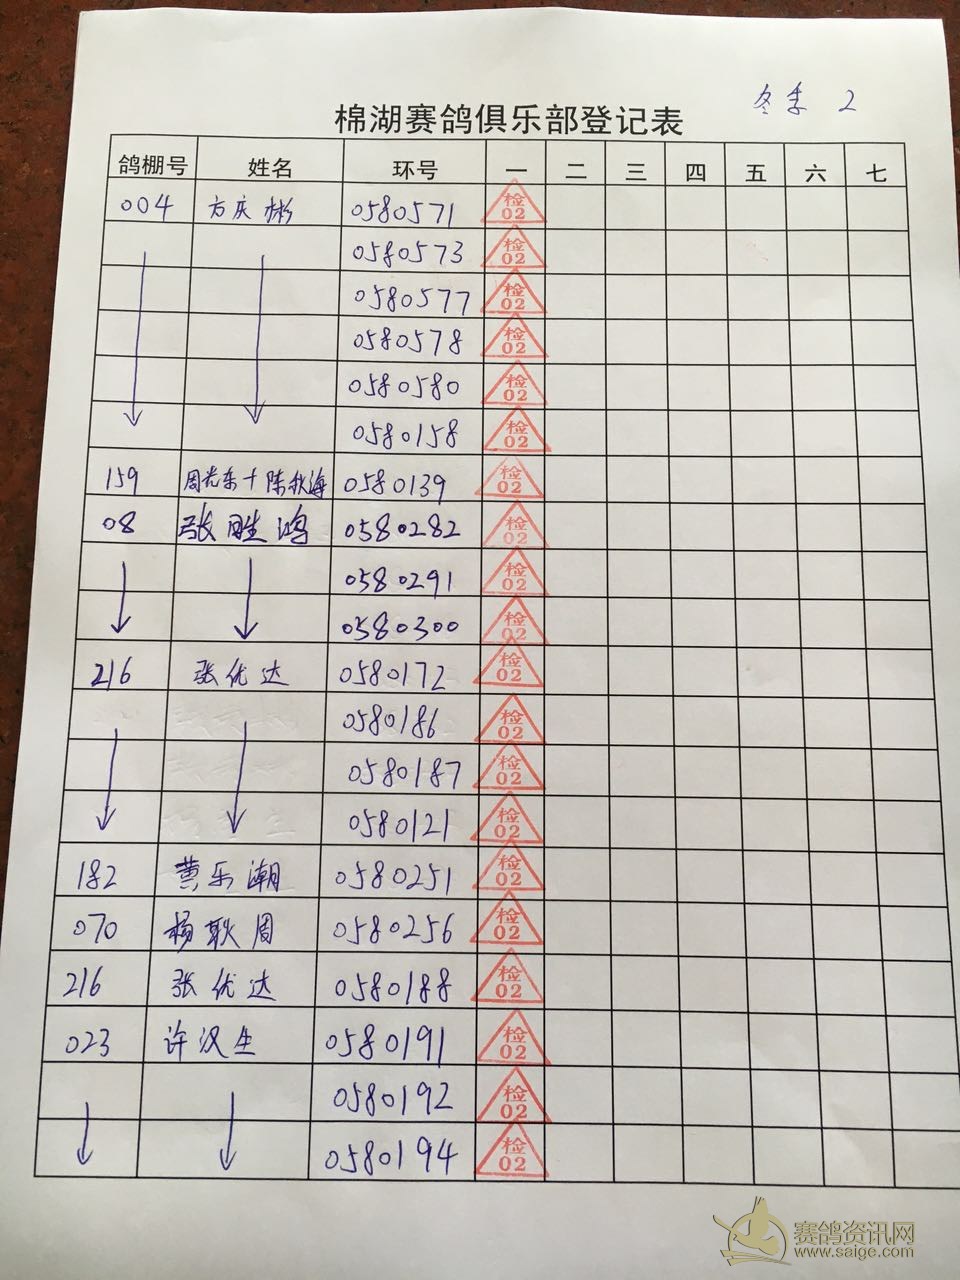 冬季 2
棉湖赛鸽俱乐部登记表
鸽棚号 姓名 环号 一 二 三 四 五 六 七
004 方庆彬 0580571 检02
0580573 检02
0580577 检02
0580578 检02
0580580 检02
0580158 检02
159 周光东+陈秋海 0580139 检02
08 张胜鸿 0580282 检02
0580291 检02
0580300 检02
216 张优达 0580172 检02
0580186 检02
0580187 检02
0580121 检02
182 黄乐潮 0580251 检02
070 杨耿周 0580256 检02
216 张优达 0580188 检02
023 许汉生 0580191 检02
0580192 检02
0580194 检02
赛鸽资讯网
www.saige.com